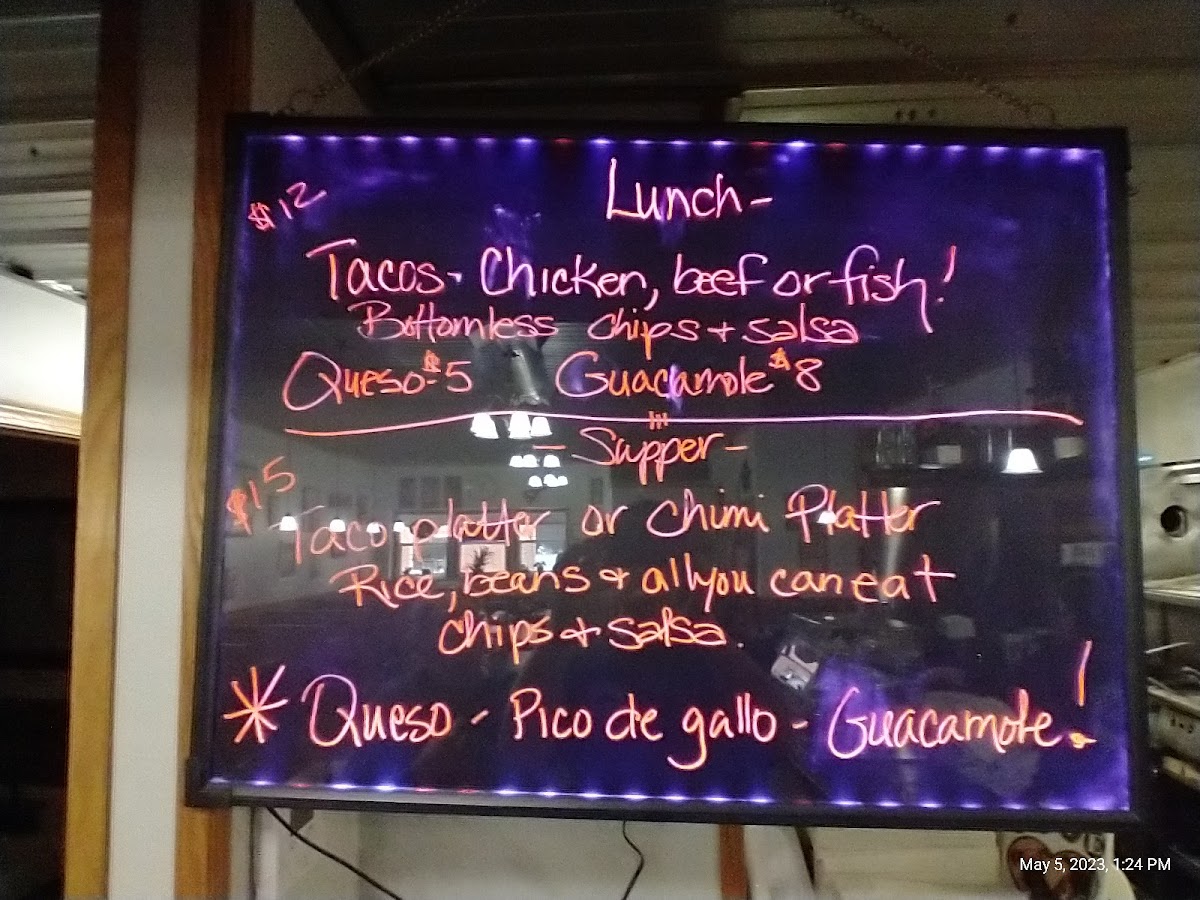 $12
Lunch-
Tacos- Chicken, beef or fish!
Bottomless chips + salsa
Queso-$5 Guacamole $8
- Supper -
$15
Taco platter or Chimi Platter
Rice, beans + all you can eat
chips + salsa.
* Queso - Pico de gallo - Guacamole!
May 5, 2023, 1:24 PM